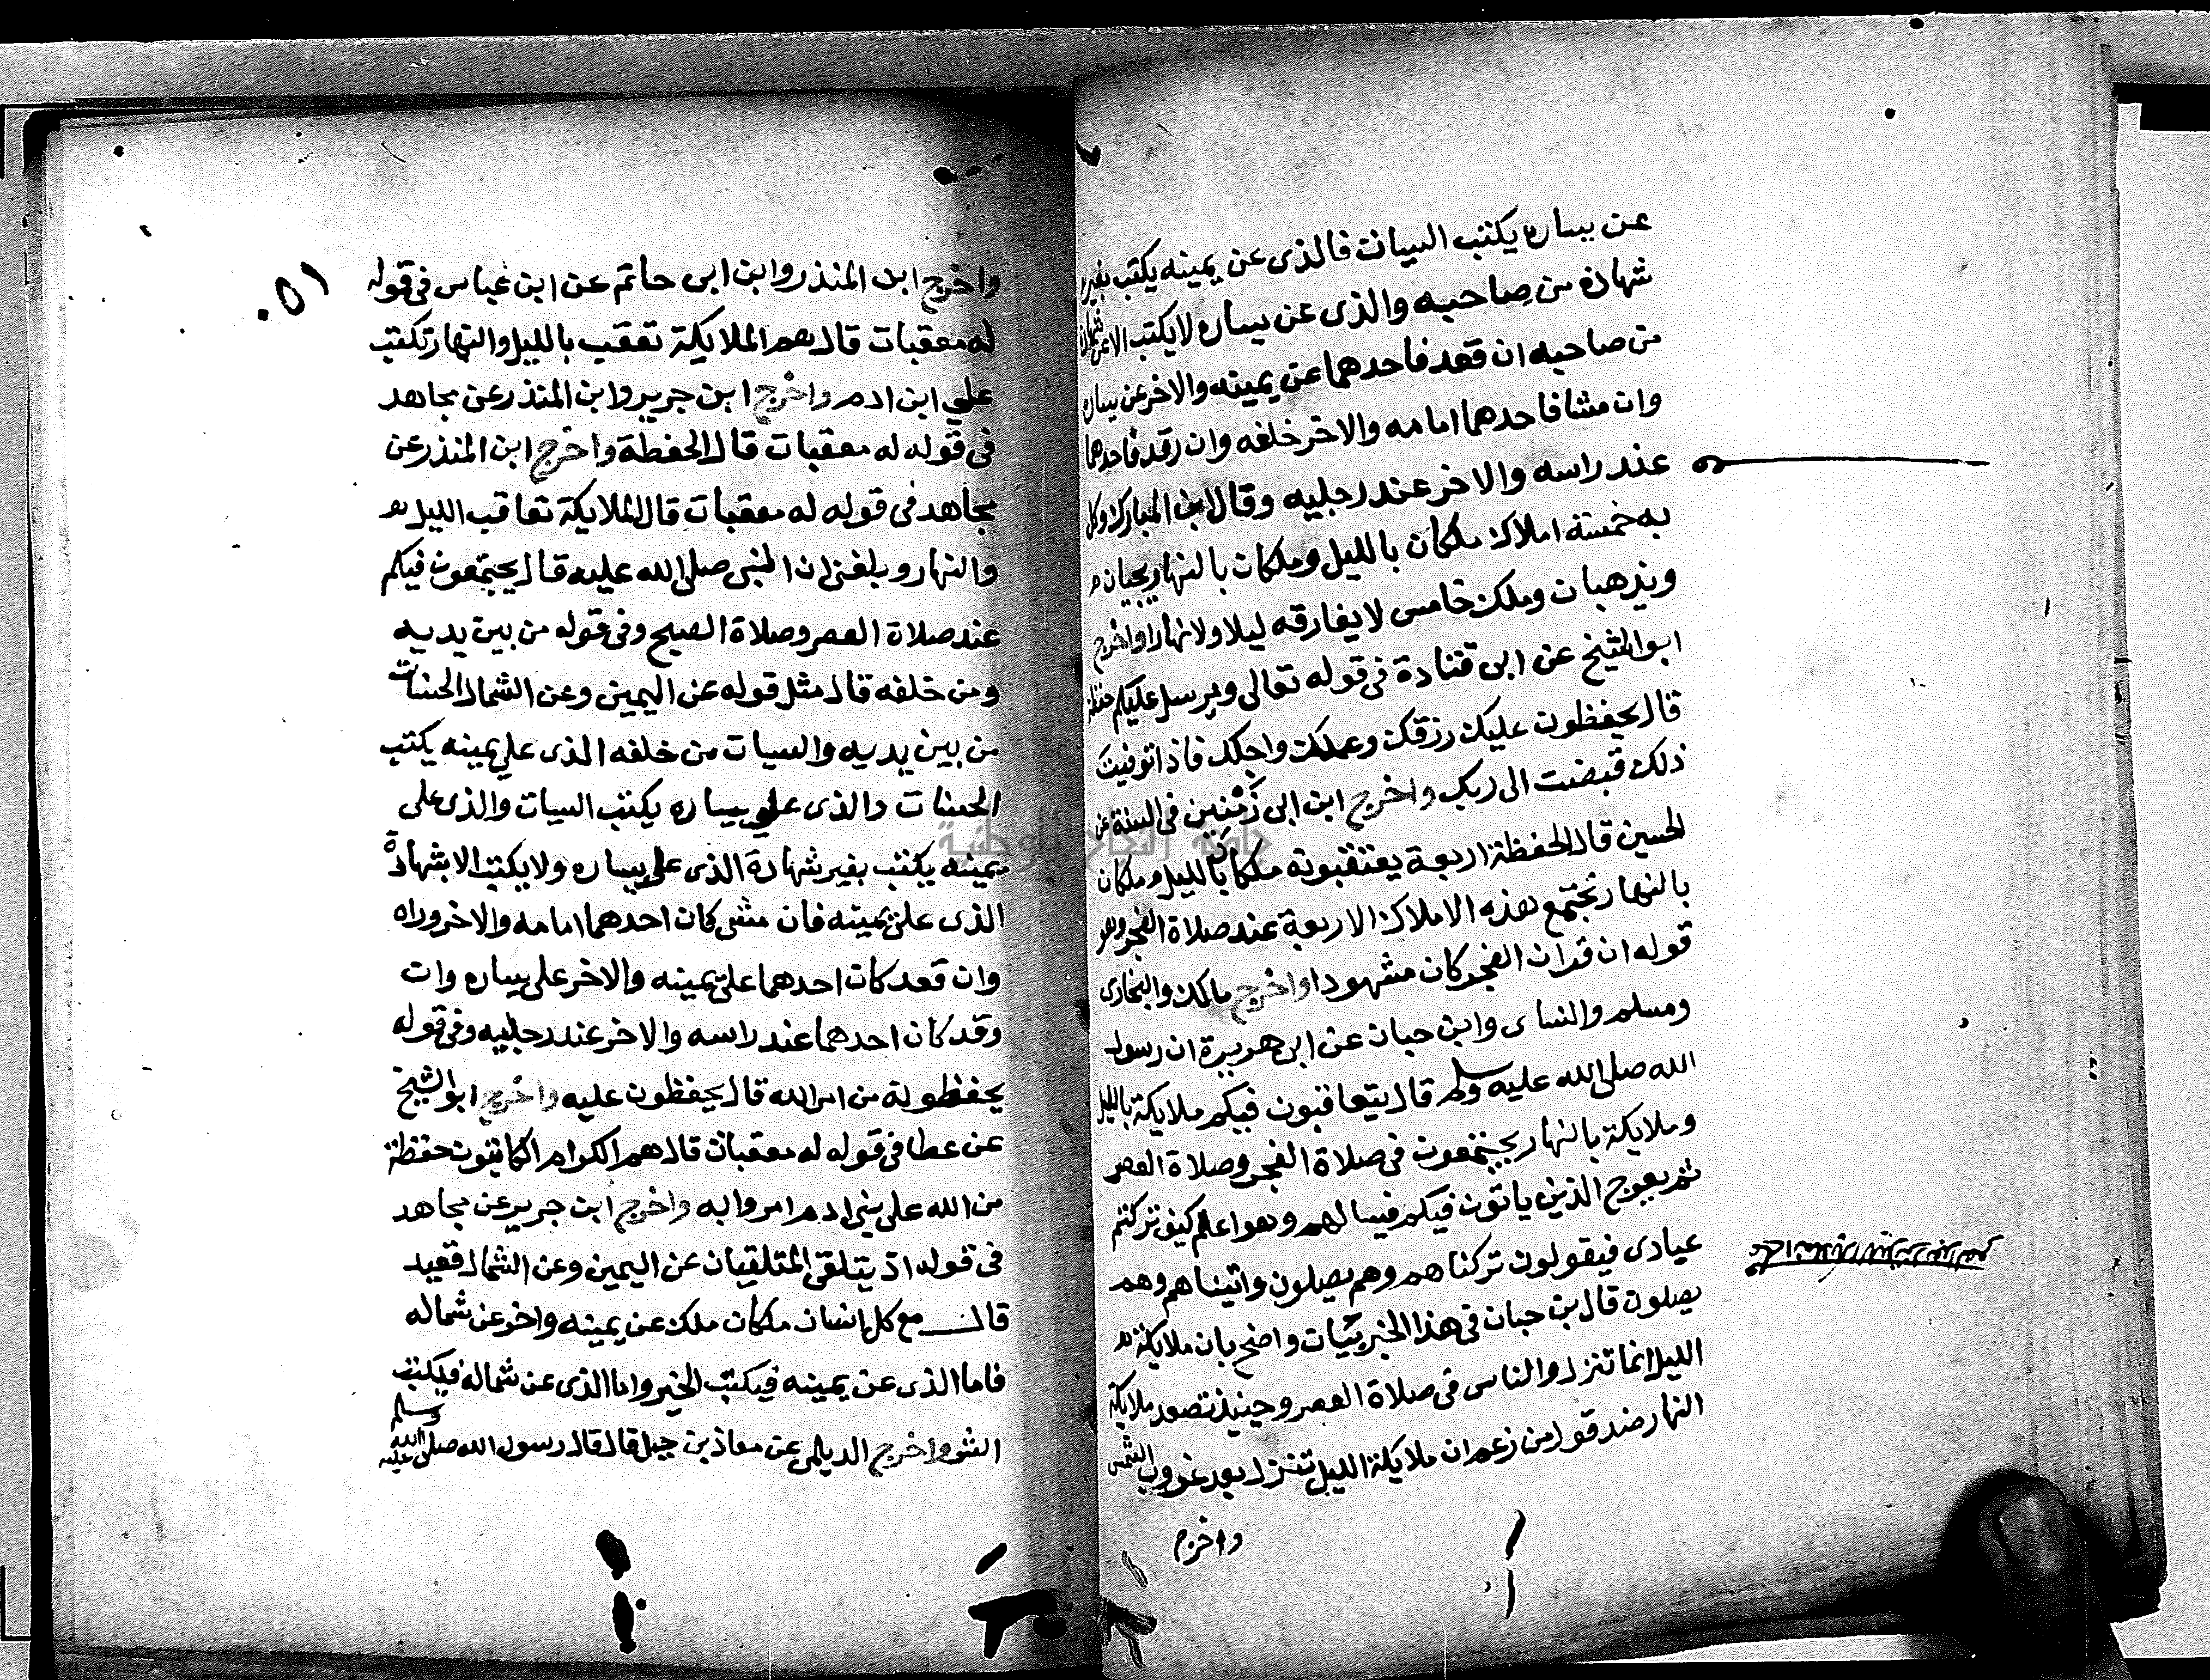 عن يساره يكتب السيات فالذى عن يمينه يكتب بغير
شهادة من صاحبه والذى عن يساره لا يكتب الا عن شهادة
من صاحبه ان قعد فاحدهما عن يمينه والاخر عن يساره
وان مشا فاحدهما امامه والاخر خلفه وان رقد فاحدهما
عند راسه والاخر عند رجليه وقال ابن المبارك وكل
به خمسة املاك ملكان بالليل وملكان بالنهار يجيان
ويذهبان وملك خامس لا يفارقه ليلا ولا نهارا واخرج
ابو الشيخ عن ابى قتادة فى قوله تعالى ويرسل عليكم حفظة
قال يحفظون عليك رزقك وعملك واجلك فاذا توفيت
ذلك قبضت الى ربك واخرج ابن ابى زمنين فى السنة عن
الحسين قال الحفظة اربعة يعتقبونه ملكان بالليل وملكان
بالنهار تجتمع هذه الاملاك الاربعة عند صلاة الفجر وهو
قوله ان قران الفجر كان مشهودا واخرج مالك والبخارى
ومسلم والنساى وابن حبان عن ابى هريرة ان رسول
الله صلى الله عليه وسلم قال يتعاقبون فيكم ملايكة بالليل
وملايكة بالنهار يجتمعون فى صلاة الفجر وصلاة العصر
ثم يعرج الذين ياتون فيكم فيسالهم وهو اعلم كيف تركتم
عبادى فيقولون تركناهم وهم يصلون واتيناهم وهم
يصلون قال بن حبان فى هذا الخبر بيان واضح بان ملايكة
الليل انما تنزل والناس فى صلاة العصر وحينيذ تصعد ملايكة
النهار ضد قول من زعم ان ملايكة الليل تنزل بعد غروب الشمس
واخرج
١٥١
واخرج ابن المنذر وابن ابى حاتم عن ابن عباس فى قوله
له معقبات قال هم الملايكة تعقب بالليل والنهار تكتب
على ابن ادم واخرج ابن جرير وابن المنذر عن مجاهد
فى قوله له معقبات قال الحفظة واخرج ابن المنذر عن
مجاهد فى قوله له معقبات قال الملايكة تعاقب الليل
والنهار وبلغنى ان النبى صلى الله عليه قال يجتمعون فيكم
عند صلاة العصر وصلاة الصبح وفى قوله من بين يديه
ومن خلفه قال مثل قوله عن اليمين وعن الشمال الحسنات
من بين يديه والسيات من خلفه الذى على يمينه يكتب
الحسنات والذى على يساره يكتب السيات والذى على
يمينه يكتب بغير شهادة الذى على يساره ولا يكتب الا بشهادة
الذى على يمينه فان مشى كان احدهما امامه والاخر وراه
وان قعد كان احدهما على يمينه والاخر على يساره وان
رقد كان احدهما عند راسه والاخر عند رجليه وفى قوله
يحفظونه من امر الله قال يحفظون عليه واخرج ابو الشيخ
عن عطا فى قوله له معقبات قال هم الكرام الكاتبون حفظة
من الله على بنى ادم امروا به واخرج ابن جرير عن مجاهد
فى قوله اذ يتلقى المتلقيان عن اليمين وعن الشمال قعيد
قال مع كل انسان ملكان ملك عن يمينه واخر عن شماله
فاما الذى عن يمينه فيكتب الخير واما الذى عن شماله فيكتب
الشر واخرج الديلمى عن معاذ بن جبل قال قال رسول الله صلى الله عليه وسلم
جامعة النجاح الوطنية